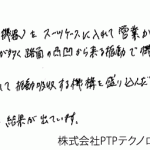 機器)をスーツケースに入れて営業か
が多く路面の凸凹から来る振動で機
れて振動吸収する機構を盛り込んだ
結果が出ています。
株式会社PTPテクノロ